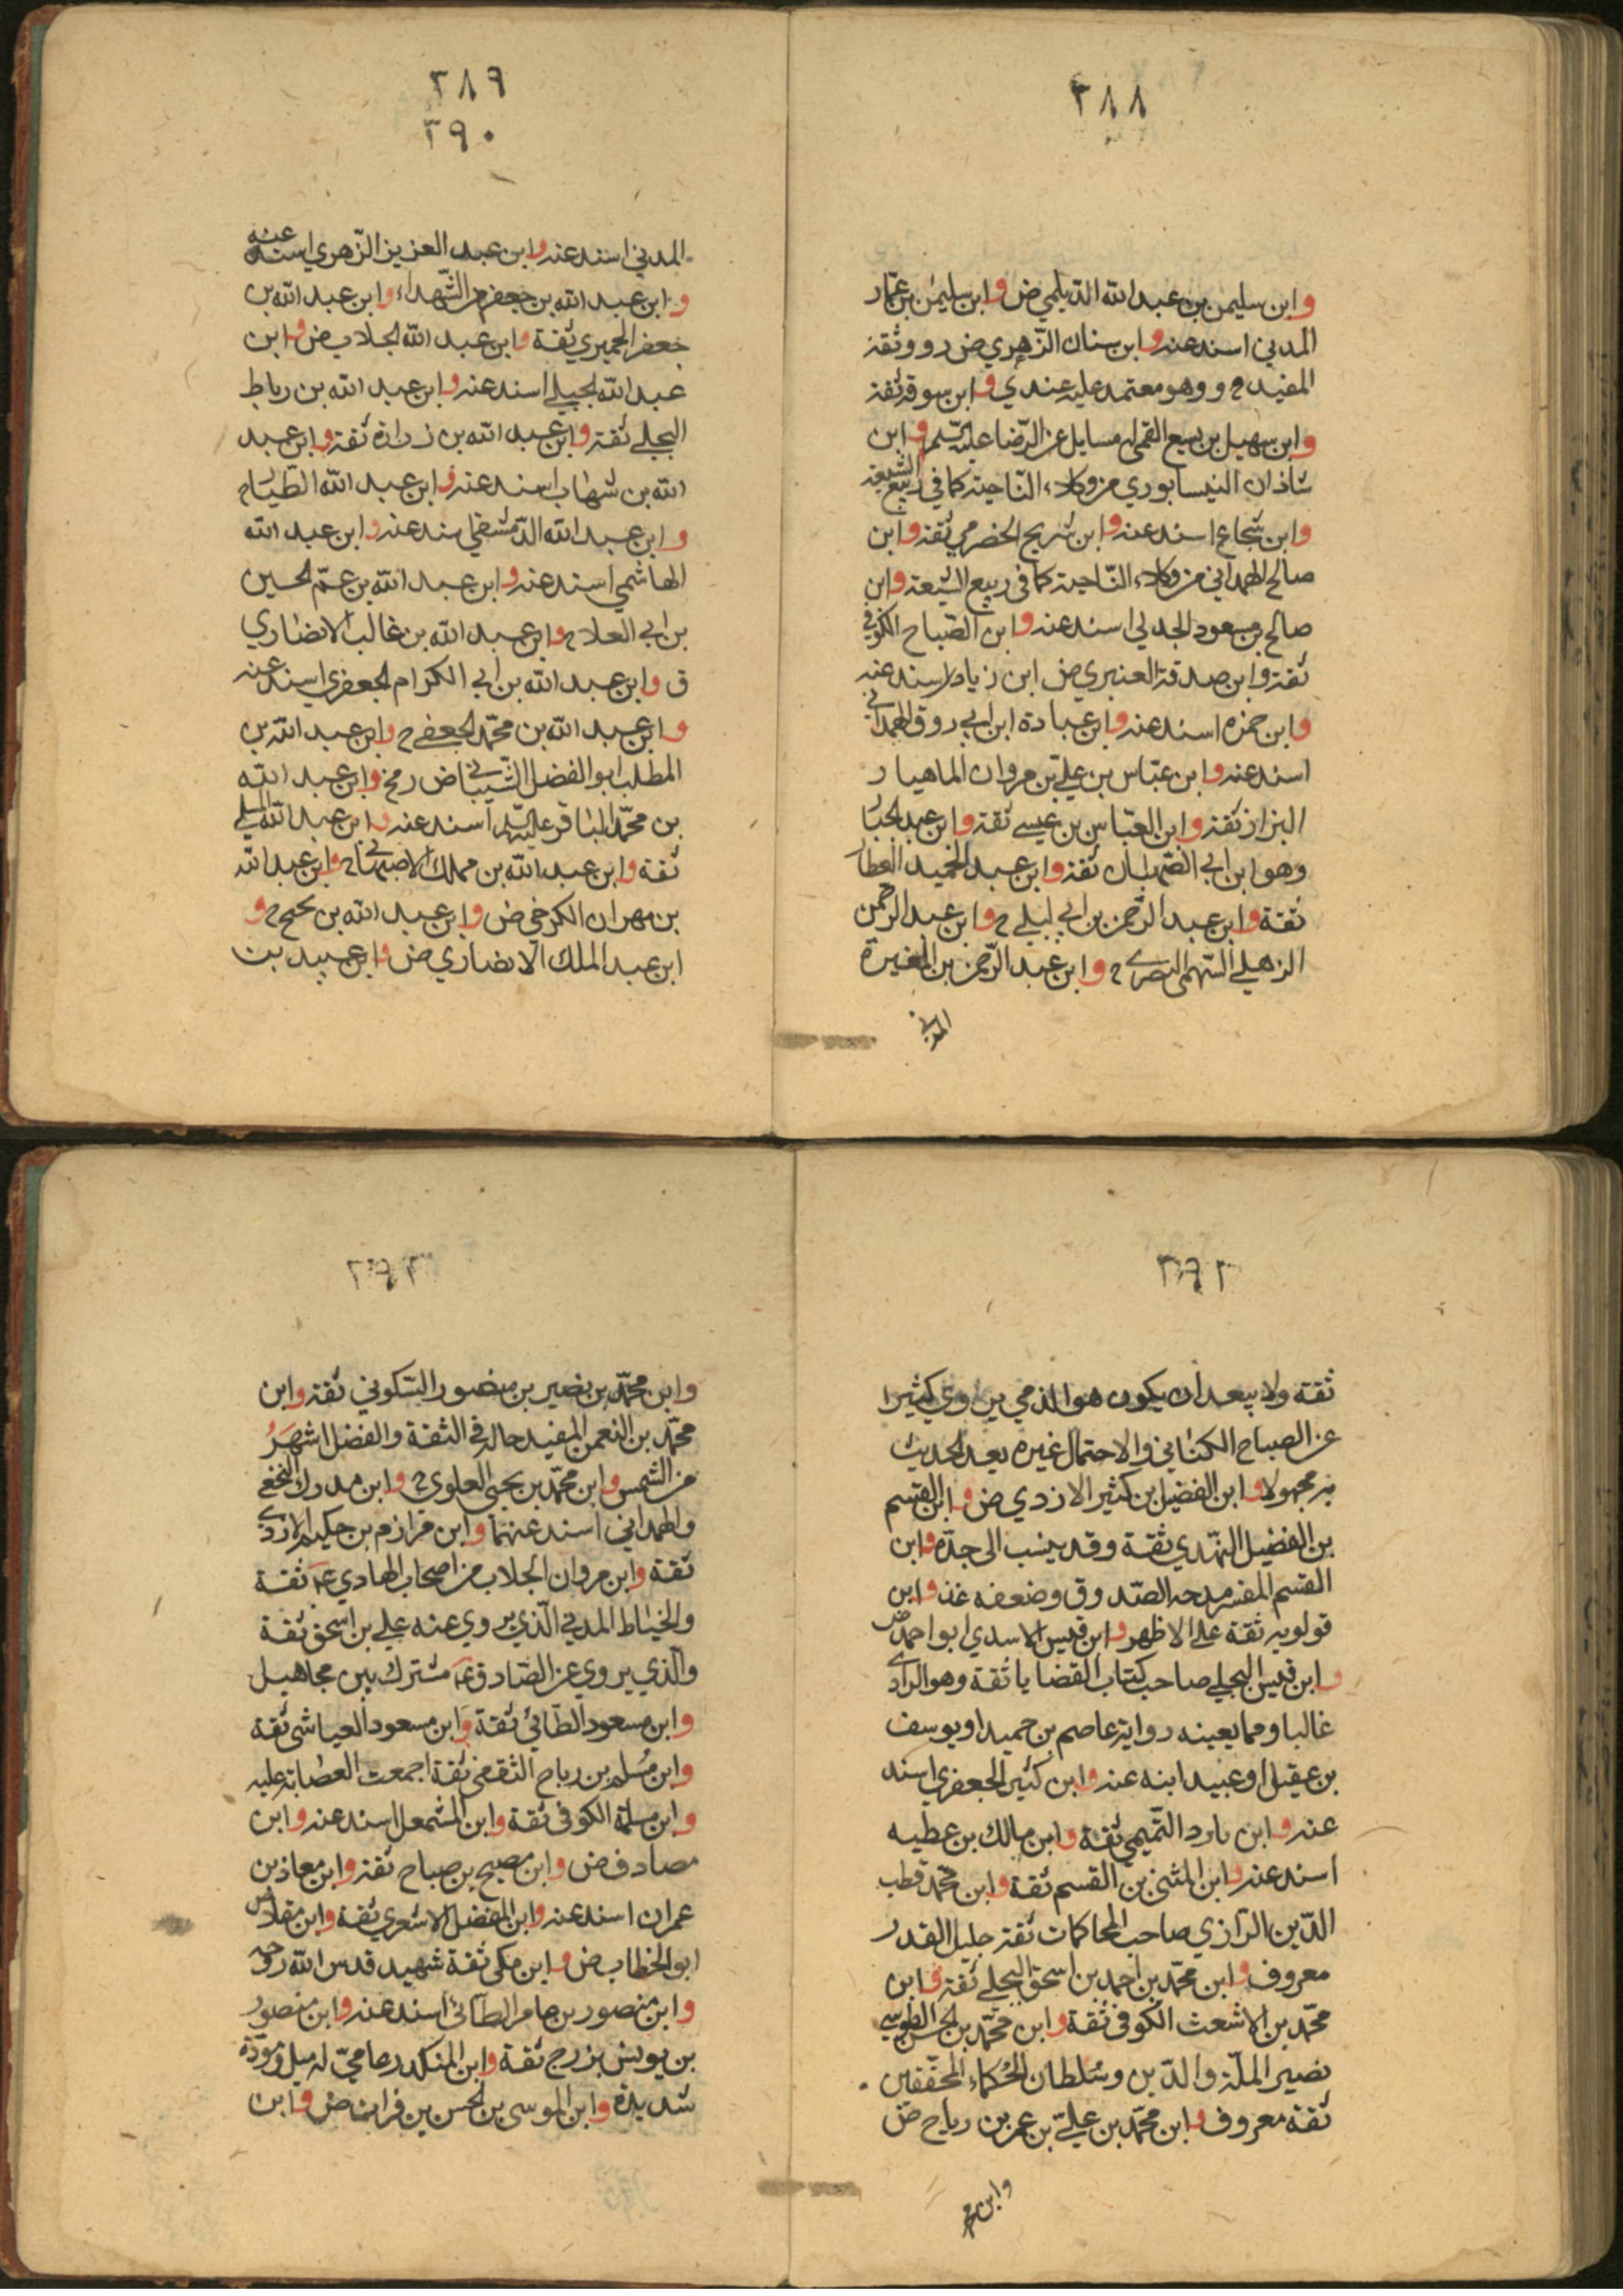 ٣٨٨
وابن سليمن بن عبد الله الديلمي ض وابن سليمن بن عمار
المدني اسند عنه وابن سنان الزهري ض ر و وثقه
المفيد و وهو معتمد عليه عندي وابن سوقه ثقة
وابن سهيل بن يسع القمي له مسايل عن الرضا عليه السلم وابن
شاذان النيسابوري من وكلاء الناحية كما في ربيع الشيعه
وابن شجاع اسند عنه وابن شريح الحضرمي ثقة وابن
صالح الهمداني من وكلاء الناحية كما في ربيع الشيعة وابن
صالح بن مسعود الجدلي اسند عنه وابن الصباح الكوفي
ثقة وابن صدقة العنبري ض ابن زياد اسند عنه
وابن حمزه اسند عنه وابن عبادة ابن ابي روق الهمداني
اسند عنه وابن عباس بن علي بن مروان الماهيار
البزاز ثقة وابن العباس بن عيسى ثقة وابن عبد الجبار
وهو ابن ابي الصهبان ثقة وابن عبد الحميد العطار
ثقة وابن عبد الرحمن بن ابي ليلى ح وابن عبد الرحمن
الذهلي السهمي البصري ح وابن عبد الرحمن بن المغيرة
المدني
٣٨٩
٣٩٠
المدني اسند عنه وابن عبد العزيز الزهري اسند عنه
وابن عبد الله بن جعفر من الشهداء وابن عبد الله بن
جعفر الحميري ثقة وابن عبد الله الجلاب ض وابن
عبد الله الجبلي اسند عنه وابن عبد الله بن رباط
البجلي ثقة وابن عبد الله بن زرارة ثقة وابن عبد
الله بن شهاب اسند عنه وابن عبد الله الطيار
وابن عبد الله الدمشقي اسند عنه وابن عبد الله
الهاشمي اسند عنه وابن عبد الله بن عم الحسين
بن ابي العلا ح وابن عبد الله بن غالب الانصاري
ق وابن عبد الله بن ابي الكرام الجعفري اسند عنه
وابن عبد الله بن محمد الجعفي ح وابن عبد الله بن
المطلب ابو الفضل الشيباني ض رمخ وابن عبد الله
بن محمد الباقر عليه السلم اسند عنه وابن عبد الله المسلي
ثقة وابن عبد الله بن مملك الاصبهاني ح وابن عبد الله
بن مهران الكرخي ض وابن عبد الله بن نجيح ح و
ابن عبد الملك الانصاري ض وابن عبيد بن
٣٩٢
ثقة ولا يبعد ان يكون هو الذي يروي كثيرا
عن الصباح الكناني والاحتمال غيره يعد الحديث
به مجهولا وابن الفضيل بن كثير الازدي ض وابن القسم
بن الفضيل النهدي ثقة وقد ينسب الى جده وابن
القسم المفسر مدحه الصدوق وضعفه غض وابن
قولويه ثقة على الاظهر وابن قيس الاسدي ابو احمد ض
وابن قيس البجلي صاحب كتاب القضايا ثقة وهو الراوي
غالبا ومما يعينه رواية عاصم بن حميد او يوسف
بن عقيل او عبيد ابنه عنه وابن كثير الجعفري اسند
عنه وابن مارد التميمي ثقة وابن مالك بن عطيه
اسند عنه وابن المثنى بن القسم ثقة وابن محمد قطب
الدين الرازي صاحب المحاكمات ثقة جليل القدر
معروف وابن محمد بن احمد بن اسحق البجلي ثقة وابن
محمد بن الاشعث الكوفي ثقة وابن محمد بن الحسن الطوسي
نصير الملة والدين وسلطان الحكماء المحققين
ثقة معروف وابن محمد بن علي بن عمر بن رياح ض
وابن محمد
٣٩٣
وابن محمد بن نصير بن منصور السكوني ثقة وابن
محمد بن النعمن المفيد حاله في الثقة والفضل اشهر
من الشمس وابن محمد بن يحيى العلوي ح وابن مدرك النخعي
والهمداني اسند عنهما وابن مرازم بن حكيم الازدي
ثقة وابن مروان الجلاب من اصحاب الهادي عم ثقة
والخياط المدني الذي يروي عنه علي بن اسحق ثقة
والذي يروي عن الصادق عم مشترك بين مجاهيل
وابن مسعود الطائي ثقة وابن مسعود العياشي ثقة
وابن مسلم بن رباح الثقفي ثقة اجمعت العصابة عليه
وابن مسلمة الكوفي ثقة وابن المشمعل اسند عنه وابن
مصادف ض وابن مصبح بن صباح ثقة وابن معاذ بن
عمران اسند عنه وابن المفضل الاشعري ثقة وابن مقلاص
ابو الخطاب ض وابن مكي ثقة شهيد قدس الله روحه
وابن منصور بن حامر الطائي اسند عنه وابن منصور
بن يونس بزرج ثقة وابن المنكدر عامي له ميل ومودة
شديدة وابن الموسى بن الحسن بن فرات ض وابن